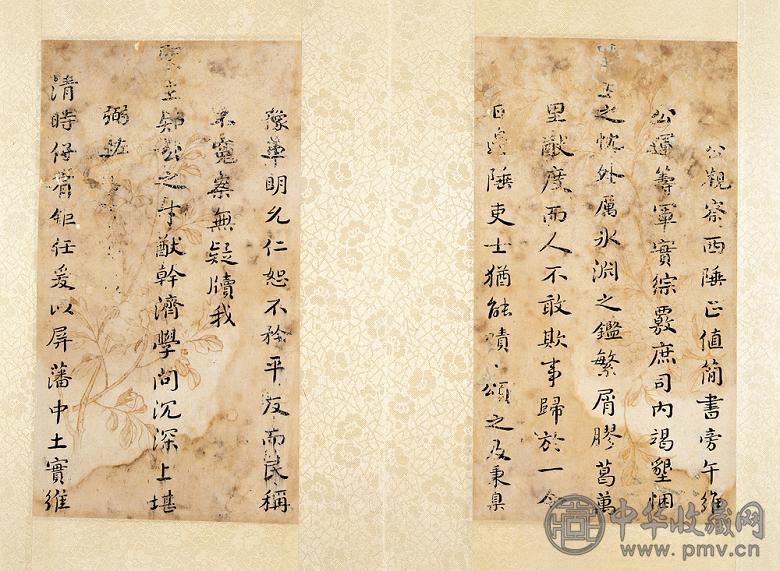 公觀察西陲正值簡書旁午維
公運籌軍實綜覈庶司內竭墾悃
之忱外厲冰淵之鑑繁屑膠葛萬
里猷度而人不敢欺事歸於一今
陲吏士猶能嘖嘖頌之及秉臬
豫章明允仁恕不矜平反而民稱
不冤案無疑牘我
聖主知公之才猷幹濟學問沉深上堪
弼
清時任爰以屏藩中土實維
中华收藏网
www.pmv.cn